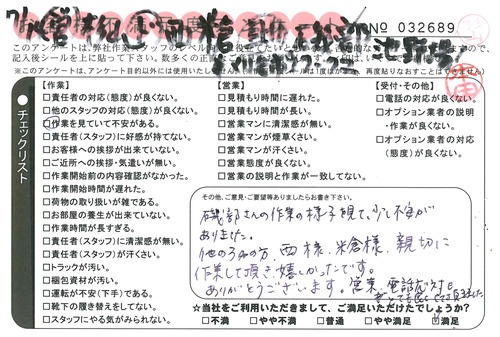 № 032689
このアンケートは、弊社作業スタッフのレベル
記入後シールを上に貼って下さい。
※このアンケートは、アンケート目的以外には使用いたしません。
再度貼りなおすことはできません)
チェックリスト
【作業】
□責任者の対応(態度)が良くない。
□他のスタッフの対応(態度)が良くない。
□作業を見ていて不安がある。
□責任者(スタッフ)に好感が持てない。
□お客様への挨拶が出来ていない。
□ご近所への挨拶・気遣いが無い。
□作業開始前の内容確認がなかった。
□作業開始時間が遅れた。
□荷物の取り扱いが雑である。
□お部屋の養生が出来ていない。
□作業時間が長すぎる。
□責任者(スタッフ)に清潔感が無い。
□責任者(スタッフ)が汗くさい。
□トラックが汚い。
□梱包資材が汚い。
□運転が不安(下手)である。
□靴下の履き替えをしてない。
□スタッフにやる気がみられない。
【営業】
□見積もり時間に遅れた。
□見積もり時間が長い。
□営業マンに清潔感が無い。
□営業マンが煙草くさい。
□営業マンが汗くさい。
□営業態度が良くない。
□営業の説明と作業が一致してない。
【受付・その他】
□電話の対応が良くない。
□オプション業者の説明
・作業が良くない。
□オプション業者の対応
(態度)が良くない。
その他、ご意見・ご要望等ありましたらお書き下さい。
磯部さんの作業の様子を見て、少し不安が
ありました。
他の3名の方、西様、米倉様、親切に
作業して頂き嬉しかったです。
ありがとうございます。営業、電話応対も
とても良くして頂きました。
☆当社をご利用いただきまして、ご満足いただけたでしょうか?
□不満 □やや不満 □普通 □やや満足 □満足